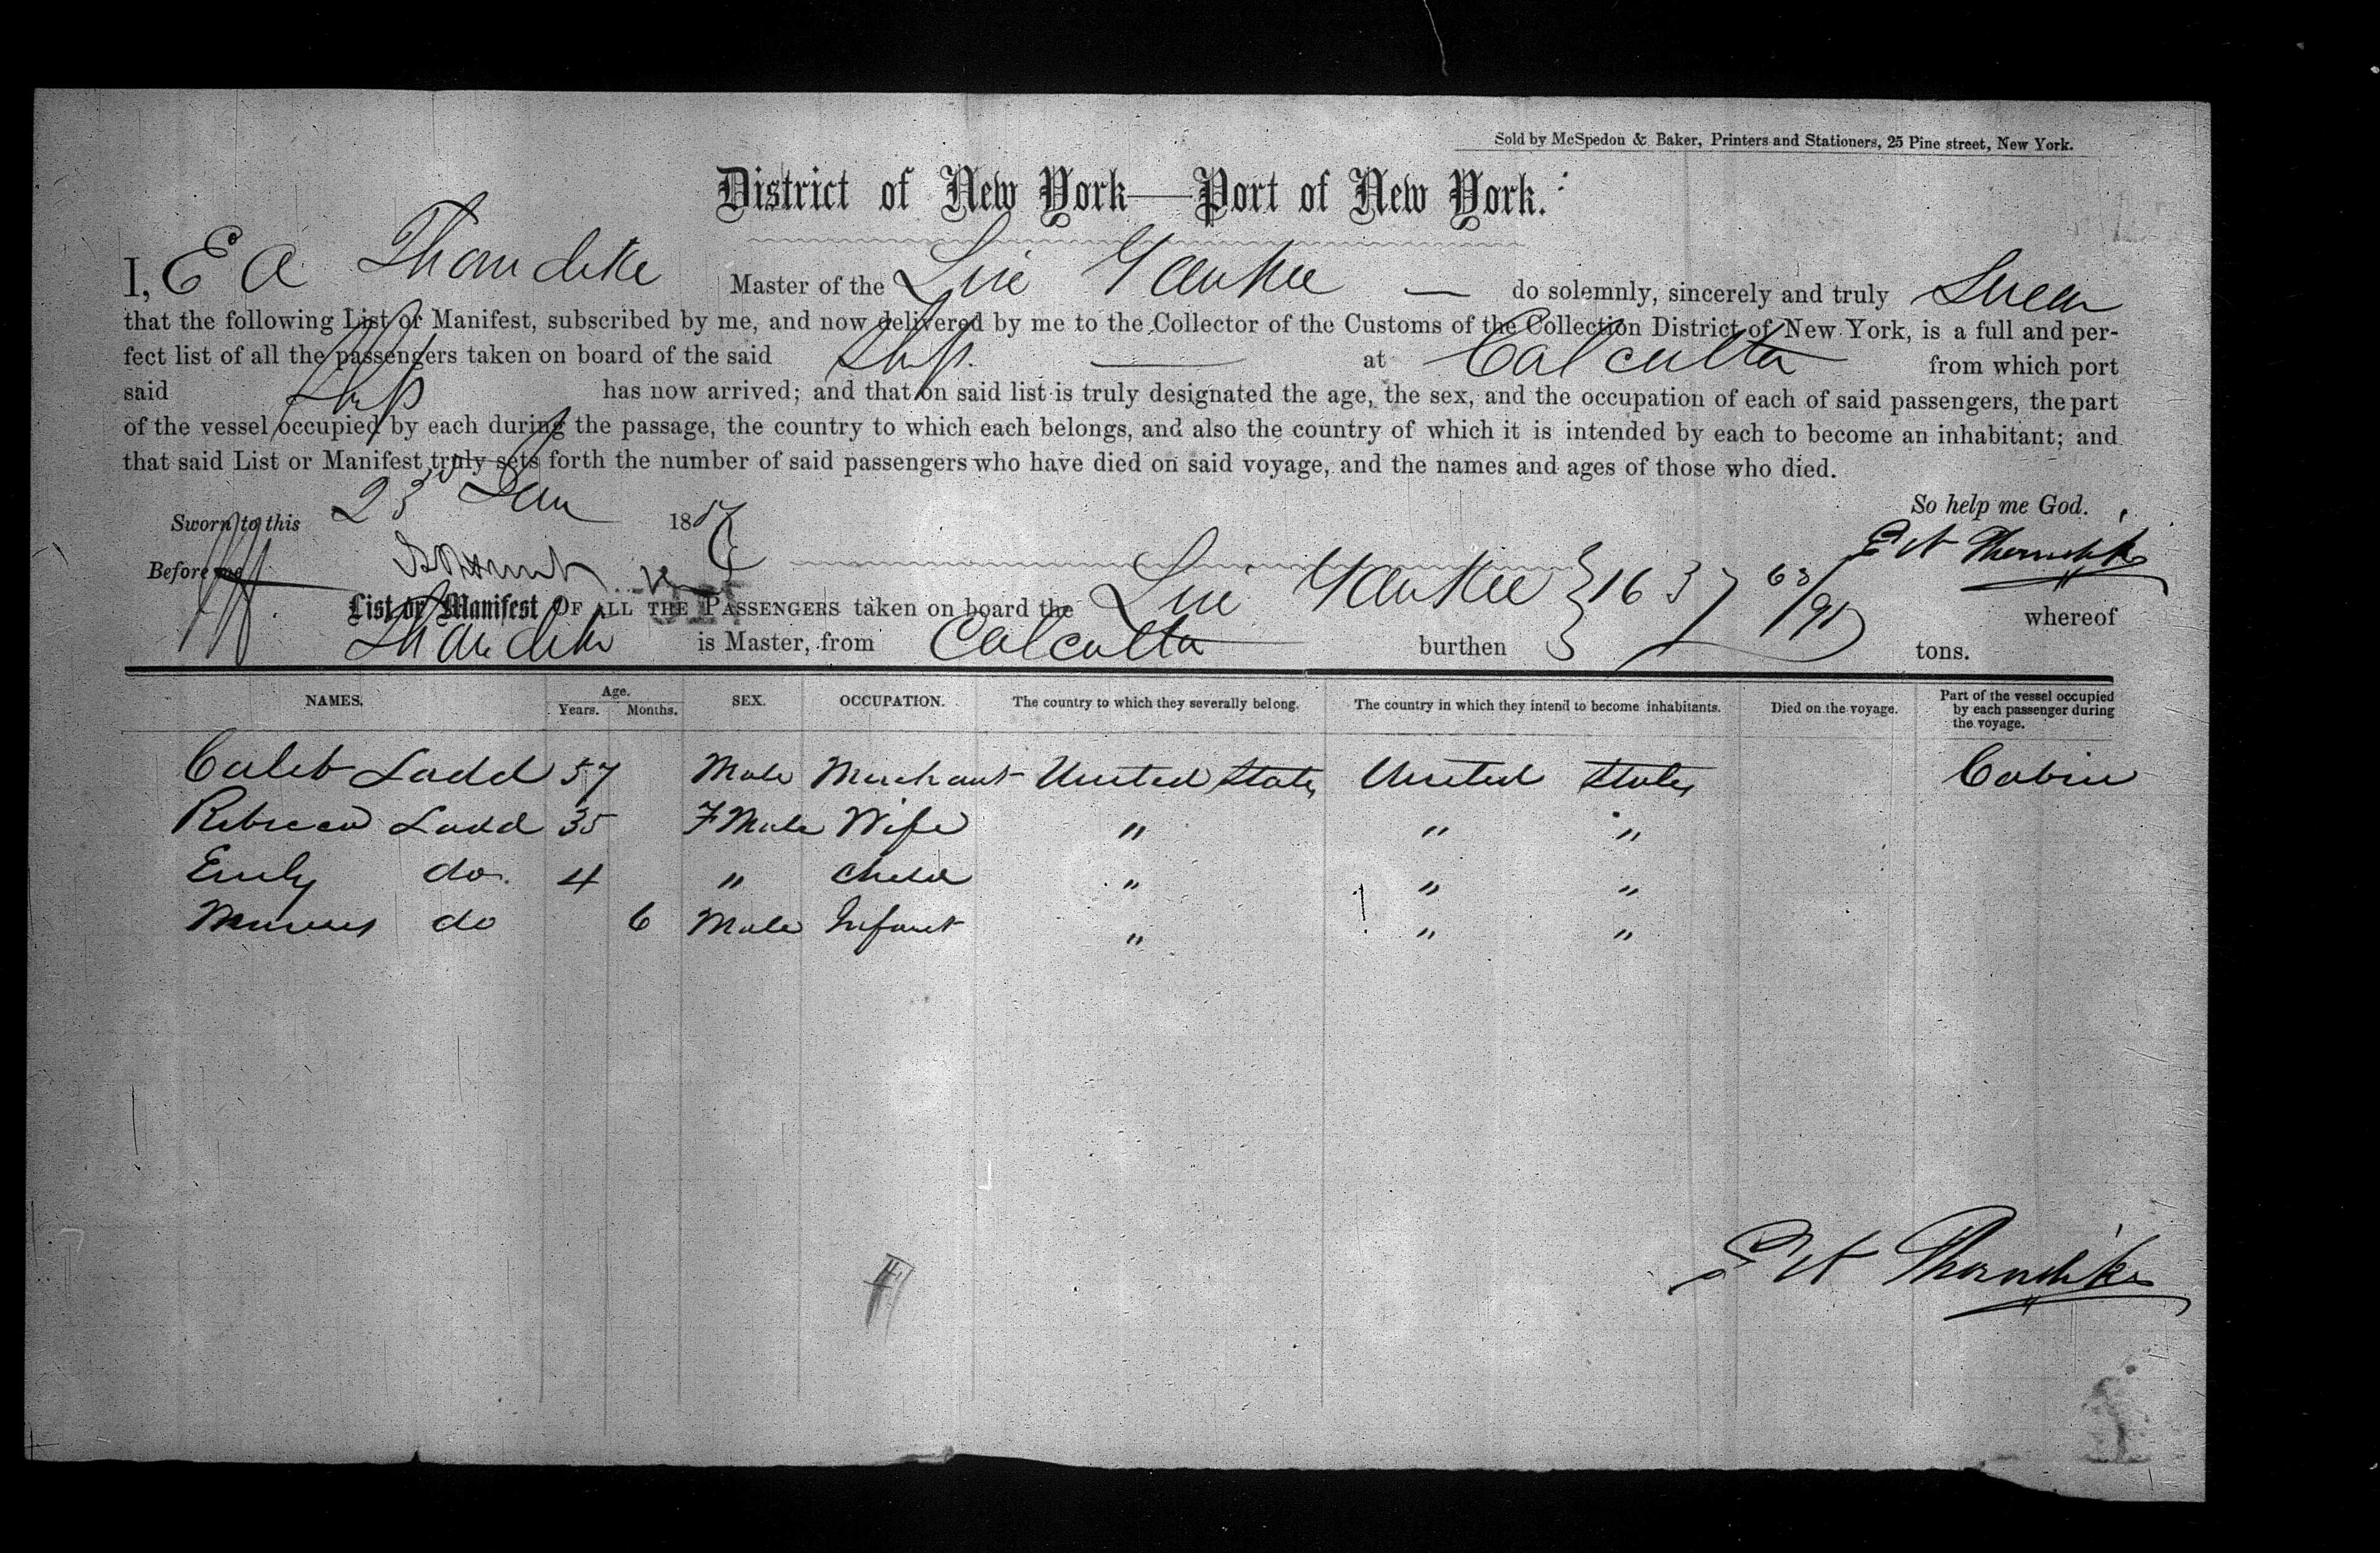 Sold by McSpedon & Baker, Printers and Stationers, 25 Pine street, New York.
District of New York—Port of New York.
I, E A Thorndike Master of the Live Yankee — do solemnly, sincerely and truly Swear
that the following List or Manifest, subscribed by me, and now delivered by me to the Collector of the Customs of the Collection District of New York, is a full and per-
fect list of all the passengers taken on board of the said Ship — at Calcutta from which port
said Ship has now arrived; and that on said list is truly designated the age, the sex, and the occupation of each of said passengers, the part
of the vessel occupied by each during the passage, the country to which each belongs, and also the country of which it is intended by each to become an inhabitant; and
that said List or Manifest truly sets forth the number of said passengers who have died on said voyage, and the names and ages of those who died.
So help me God.
Sworn to this 23 Jan 1857
E A Thorndike
Before me
List or Manifest OF ALL THE PASSENGERS taken on board the Live Yankee whereof
Thorndike is Master, from Calcutta burthen 1637 63/95 tons.
NAMES. Age. Years. Months. SEX. OCCUPATION. The country to which they severally belong. The country in which they intend to become inhabitants. Died on the voyage. Part of the vessel occupied by each passenger during the voyage.
Caleb Ladd 57 Male Merchant United States United States Cabin
Rebecca Ladd 35 FMale Wife " " "
Emily do. 4 " Child " " "
do 6 Male Infant " " "
E A Thorndike